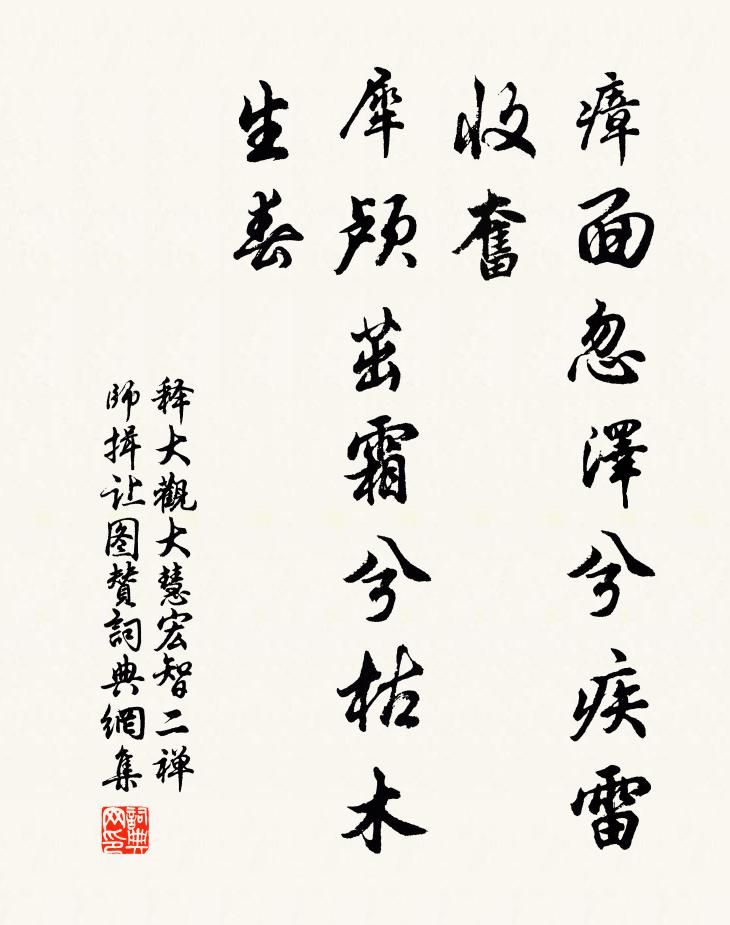 瘴面忽澤兮疾雷
收奮
犀颅茁霜兮枯木
生春
释大觀大慧宏智二禅
師揖让图赞詞典網集
詞典网印